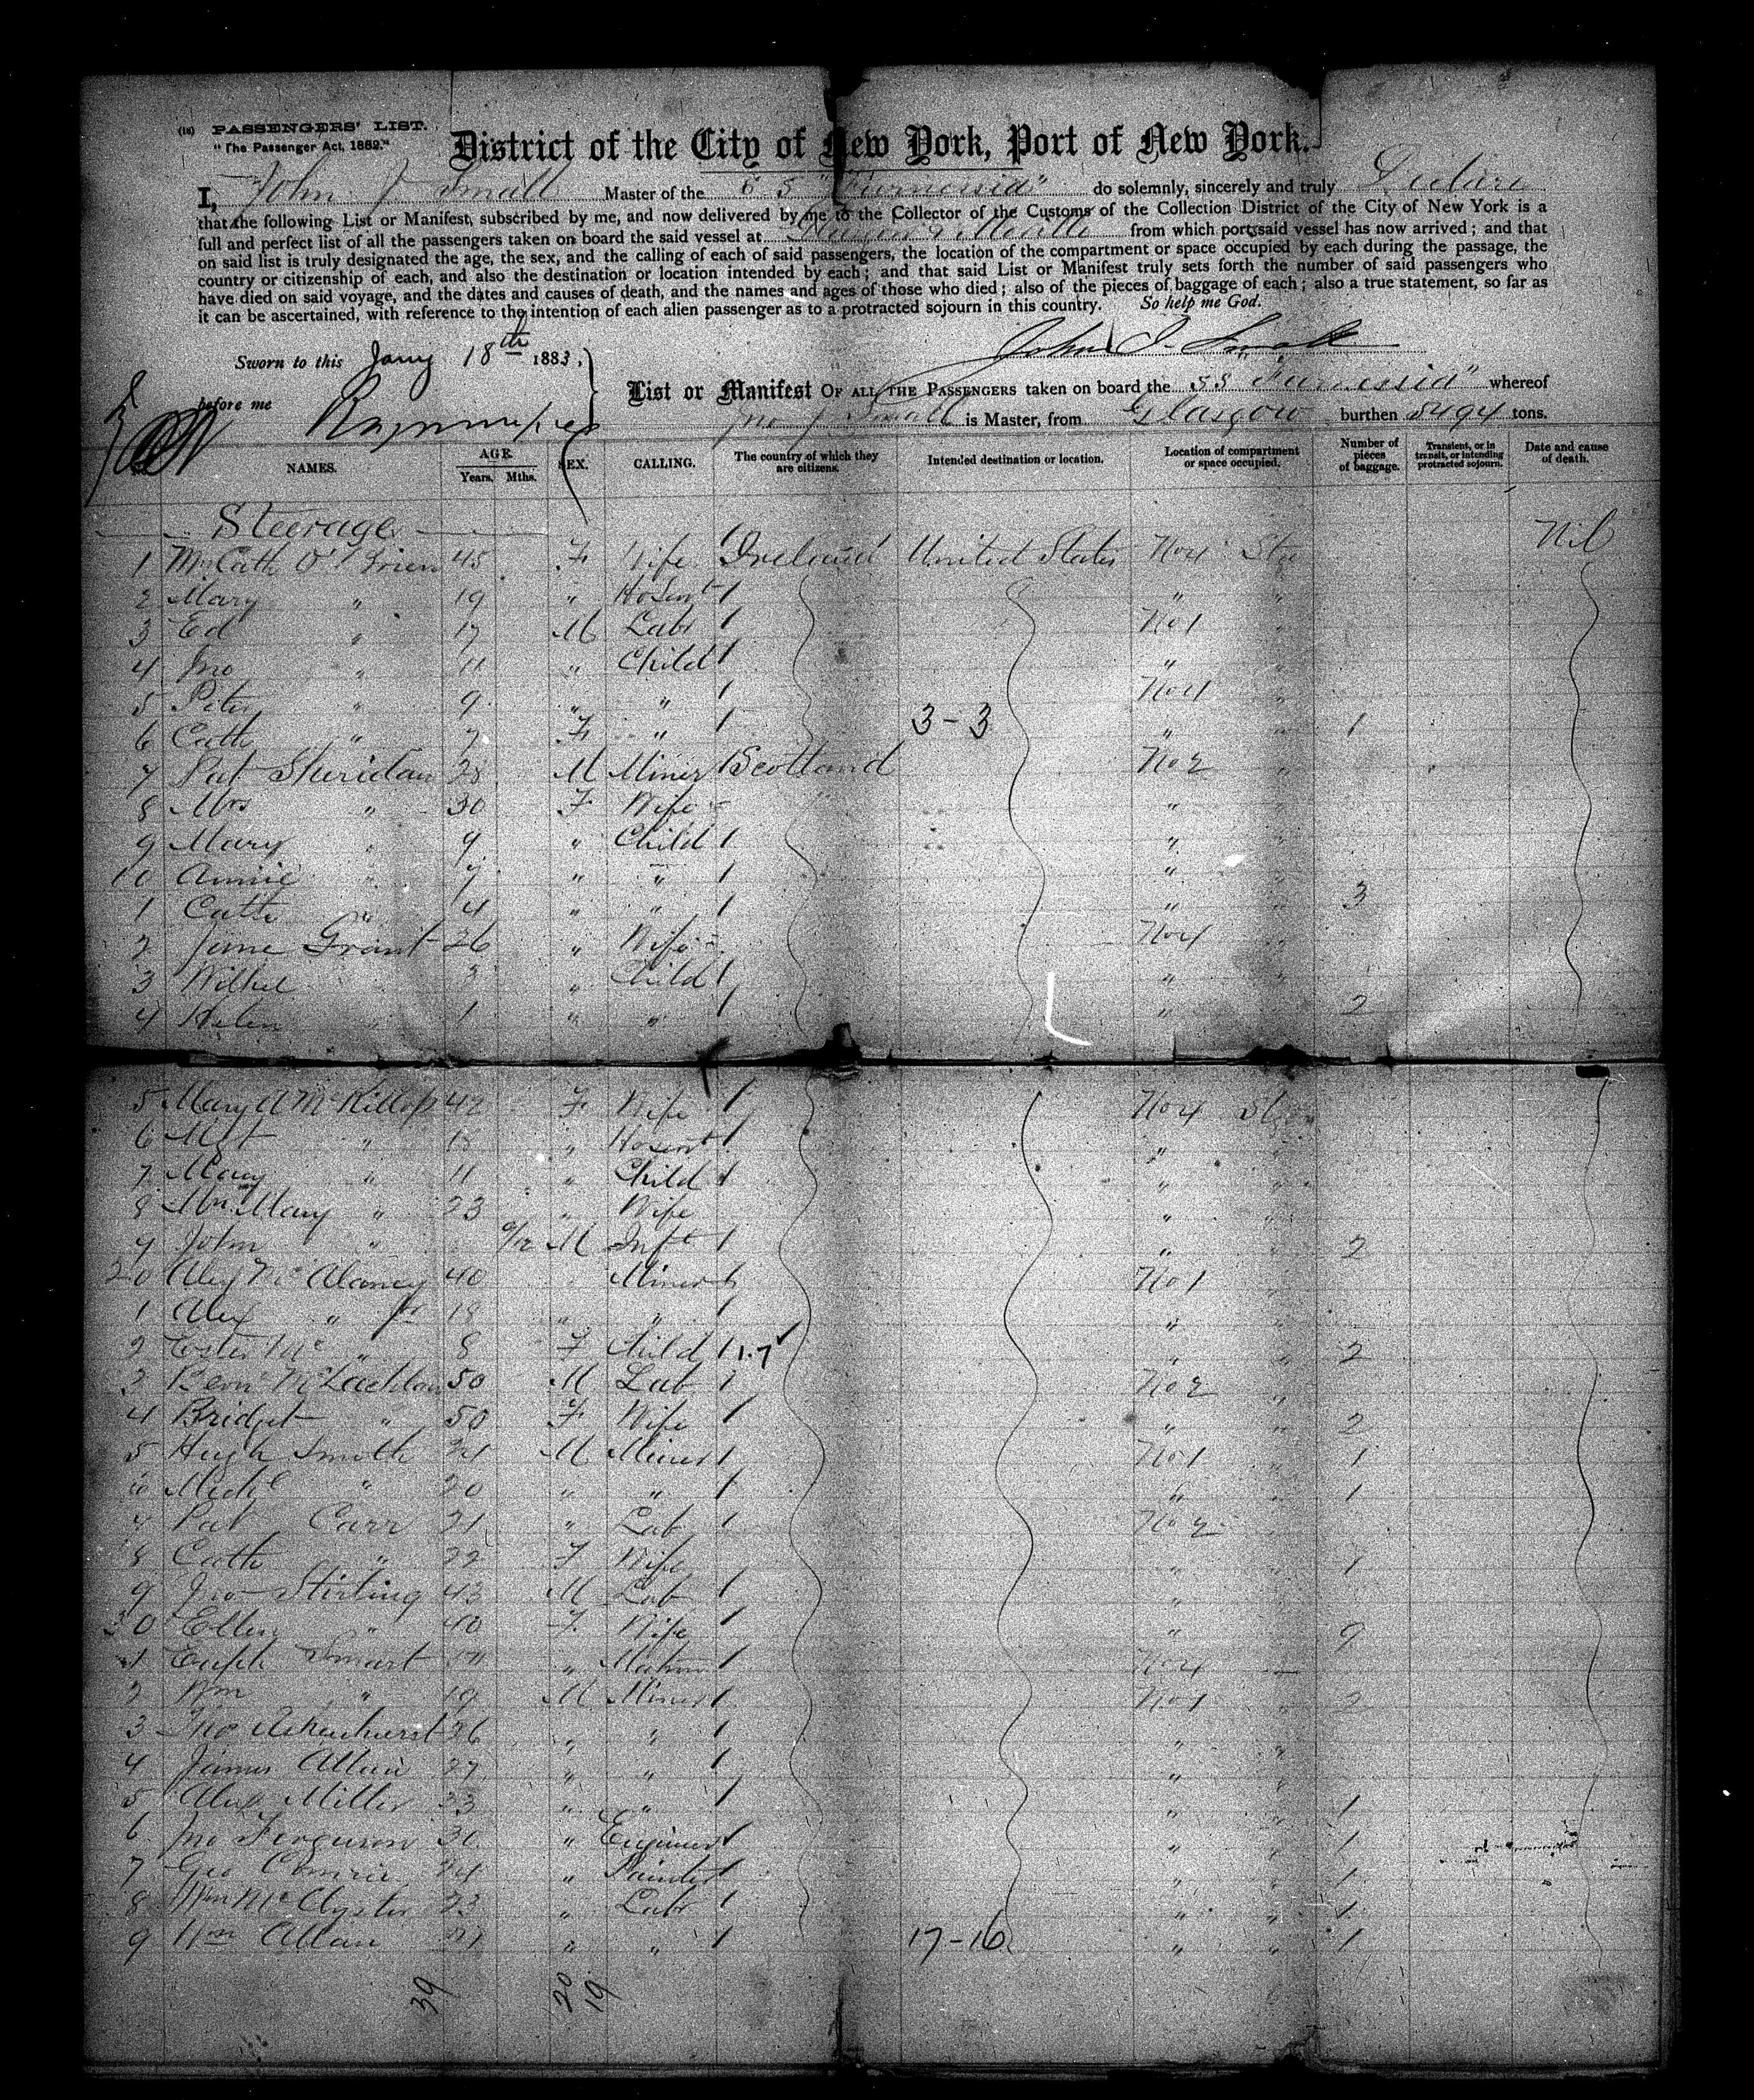 (16) PASSENGERS' LIST.
"The Passenger Act, 1882."
District of the City of New York, Port of New York.
I, John J Small Master of the S S "Furnessia" do solemnly, sincerely and truly Declare
that the following List or Manifest, subscribed by me, and now delivered by me to the Collector of the Customs of the Collection District of the City of New York is a
full and perfect list of all the passengers taken on board the said vessel at Glasgow & Moville from which port said vessel has now arrived; and that
on said list is truly designated the age, the sex, and the calling of each of said passengers, the location of the compartment or space occupied by each during the passage, the
country or citizenship of each, and also the destination or location intended by each; and that said List or Manifest truly sets forth the number of said passengers who
have died on said voyage, and the dates and causes of death, and the names and ages of those who died; also of the pieces of baggage of each; also a true statement, so far as
it can be ascertained, with reference to the intention of each alien passenger as to a protracted sojourn in this country. So help me God.
Sworn to this Jany 18th 1883.
John J. Small
before me
List or Manifest OF ALL THE PASSENGERS taken on board the SS "Furnessia" whereof
Jno J Small is Master, from Glasgow burthen 5494 tons.
NAMES. AGE. Years. Mths. SEX. CALLING. The country of which they are citizens. Intended destination or location. Location of compartment or space occupied. Number of pieces of baggage. Transient, or in transit, or intending protracted sojourn. Date and cause of death.
Steerage Nil
1 Mrs Cath O'Brien 45 F Wife 1 Ireland United States No 4 Stge
2 Mary " 19 " HoServt 1 " "
3 Ed " 17 M Labr 1 No 1 "
4 Jno " 11 " Child 1 " "
5 Peter " 9 " " 1 No 4 "
6 Cath " 7 F " 1 3-3 " " 1
7 Pat Sheridan 28 M Miner 1 Scotland No 2 "
8 Mrs " 30 F Wife " "
9 Mary " 9 " Child 1 " "
10 Annie " 7 " " 1 " "
1 Cath " 4 " " 1 " " 3
2 Jane Grant 26 " Wife No 4 "
3 Willie " 3 " Child 1 " "
4 Helen " 1 " " 1 " " 2
5 Mary A McKillop 42 F Wife 1 No 4 Stge
6 Mgt " 15 " HoServt 1 " "
7 Mary " 11 " Child 1 " "
8 Mrs Mary " 23 " Wife " "
9 John " M Inft 1 " 2
20 Alex McAloney 40 Miner 1 No 1
1 Alex " Jr 18 " " 1 "
2 Ester Mc " 8 F Child 1 1.7 " " 2
3 Bern McLachlan 50 M Lab 1 No 2 "
4 Bridget " 50 F Wife 1 " " 2
5 Hugh Smith 24 M Miner 1 No 1 " 1
6 Michl " 20 " " 1 " " 1
7 Pat Carr 21 " Lab 1 No 2 "
8 Cath " 22 F Wife " " 1
9 Jno Stirling 43 M Lab 1 "
30 Ellen " 40 F Wife 1 "
1 Euph Smart " Matron 1 No 4
2 Wm " 19 M Miner 1 No 1 " 2
3 Aikenhurst 26 " " 1 " "
4 James Allan 27 " " 1 " "
5 Alex Miller 23 " " 1 " " 1
6 Jno Ferguson 30 " Engineer 1 " " 1
7 Geo Comrie 24 " Painter 1 " " 1
8 Wm Mc 23 " Labr 1 " " 1
9 Wm Allan " " 1 17-16 " " 1
39 20 19